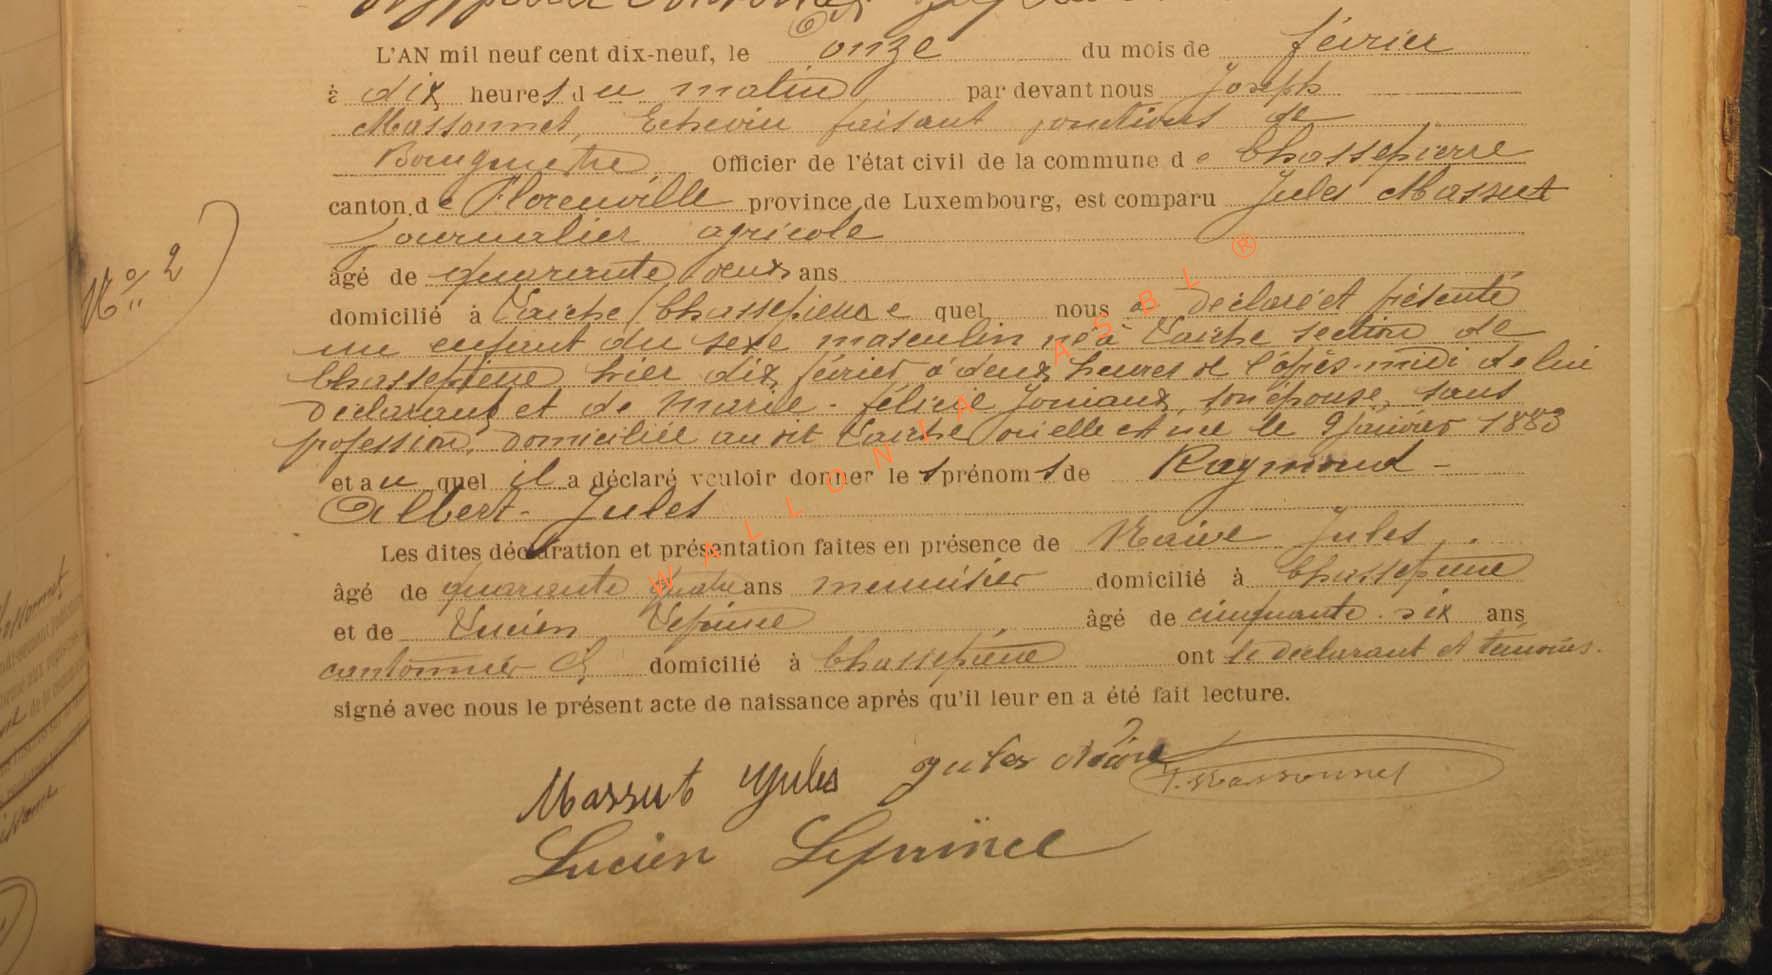 L'AN mil neuf cent dix-neuf, le onze du mois de février
à dix heures du matin par devant nous Joseph
Massonnet, Echevin faisant fonctions de
Bourgmestre Officier de l'état civil de la commune de Chassepierre
canton de Florenville province de Luxembourg, est comparu Jules Massut
journalier agricole
âgé de quarante deux ans
domicilié à Laiche (Chassepierre quel nous a déclaré et présenté
un enfant du sexe masculin né à Laiche section de
Chassepierre, hier dix février à deux heures de l'après-midi de lui
déclarant et de Marie-Félicie Joniaux, son épouse, sans
profession, domiciliée au dit Laiche où elle est née le 9 janvier 1883
et au quel il a déclaré vouloir donner les prénoms de Raymond-
Albert-Jules
Les dites déclaration et présentation faites en présence de Naivé Jules
âgé de quarante quatre ans menuisier domicilié à Chassepierre
et de Lucien Leprince âgé de cinquante-six ans
cantonnier domicilié à Chassepierre ont le déclarant et témoins
signé avec nous le présent acte de naissance après qu'il leur en a été fait lecture.
N° 2
Massut Jules Jules J. Massonnet
Lucien Leprince
WALLONIA ASBL ®